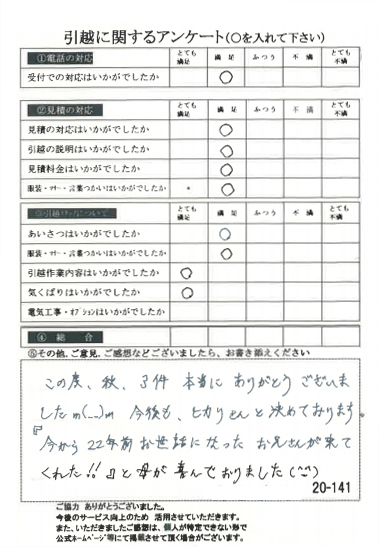 引越に関するアンケート(○を入れて下さい)
①電話の対応 とても満足 満足 ふつう 不満 とても不満
受付での対応はいかがでしたか ○
②見積の対応 とても満足 満足 ふつう 不満 とても不満
見積の対応はいかがでしたか ○
引越の説明はいかがでしたか ○
見積料金はいかがでしたか ○
服装・マナー・言葉づかいはいかがでしたか ○
とても満足 満足 ふつう 不満 とても不満
あいさつはいかがでしたか ○
服装・マナー・言葉づかいはいかがでしたか ○
引越作業内容はいかがでしたか ○
気くばりはいかがでしたか ○
電気工事・オプションはいかがでしたか
④ 総 合
⑤その他、ご意見、ご感想などございましたら、お書き添えください
この度、秋、3件 本当に ありがとう ございま
したm(__)m 今後も、ヒカリさんと決めております。
『今から22年前お世話になった お兄さんが来て
くれた!!』と母が喜んでおりました(^^)
20-141
ご協力 ありがとうございました。
今後のサービス向上のため 活用させていただきます。
また、いただきましたご感想は、個人が特定できない形で
公式ホームページ等にて掲載させて頂く場合がございます。